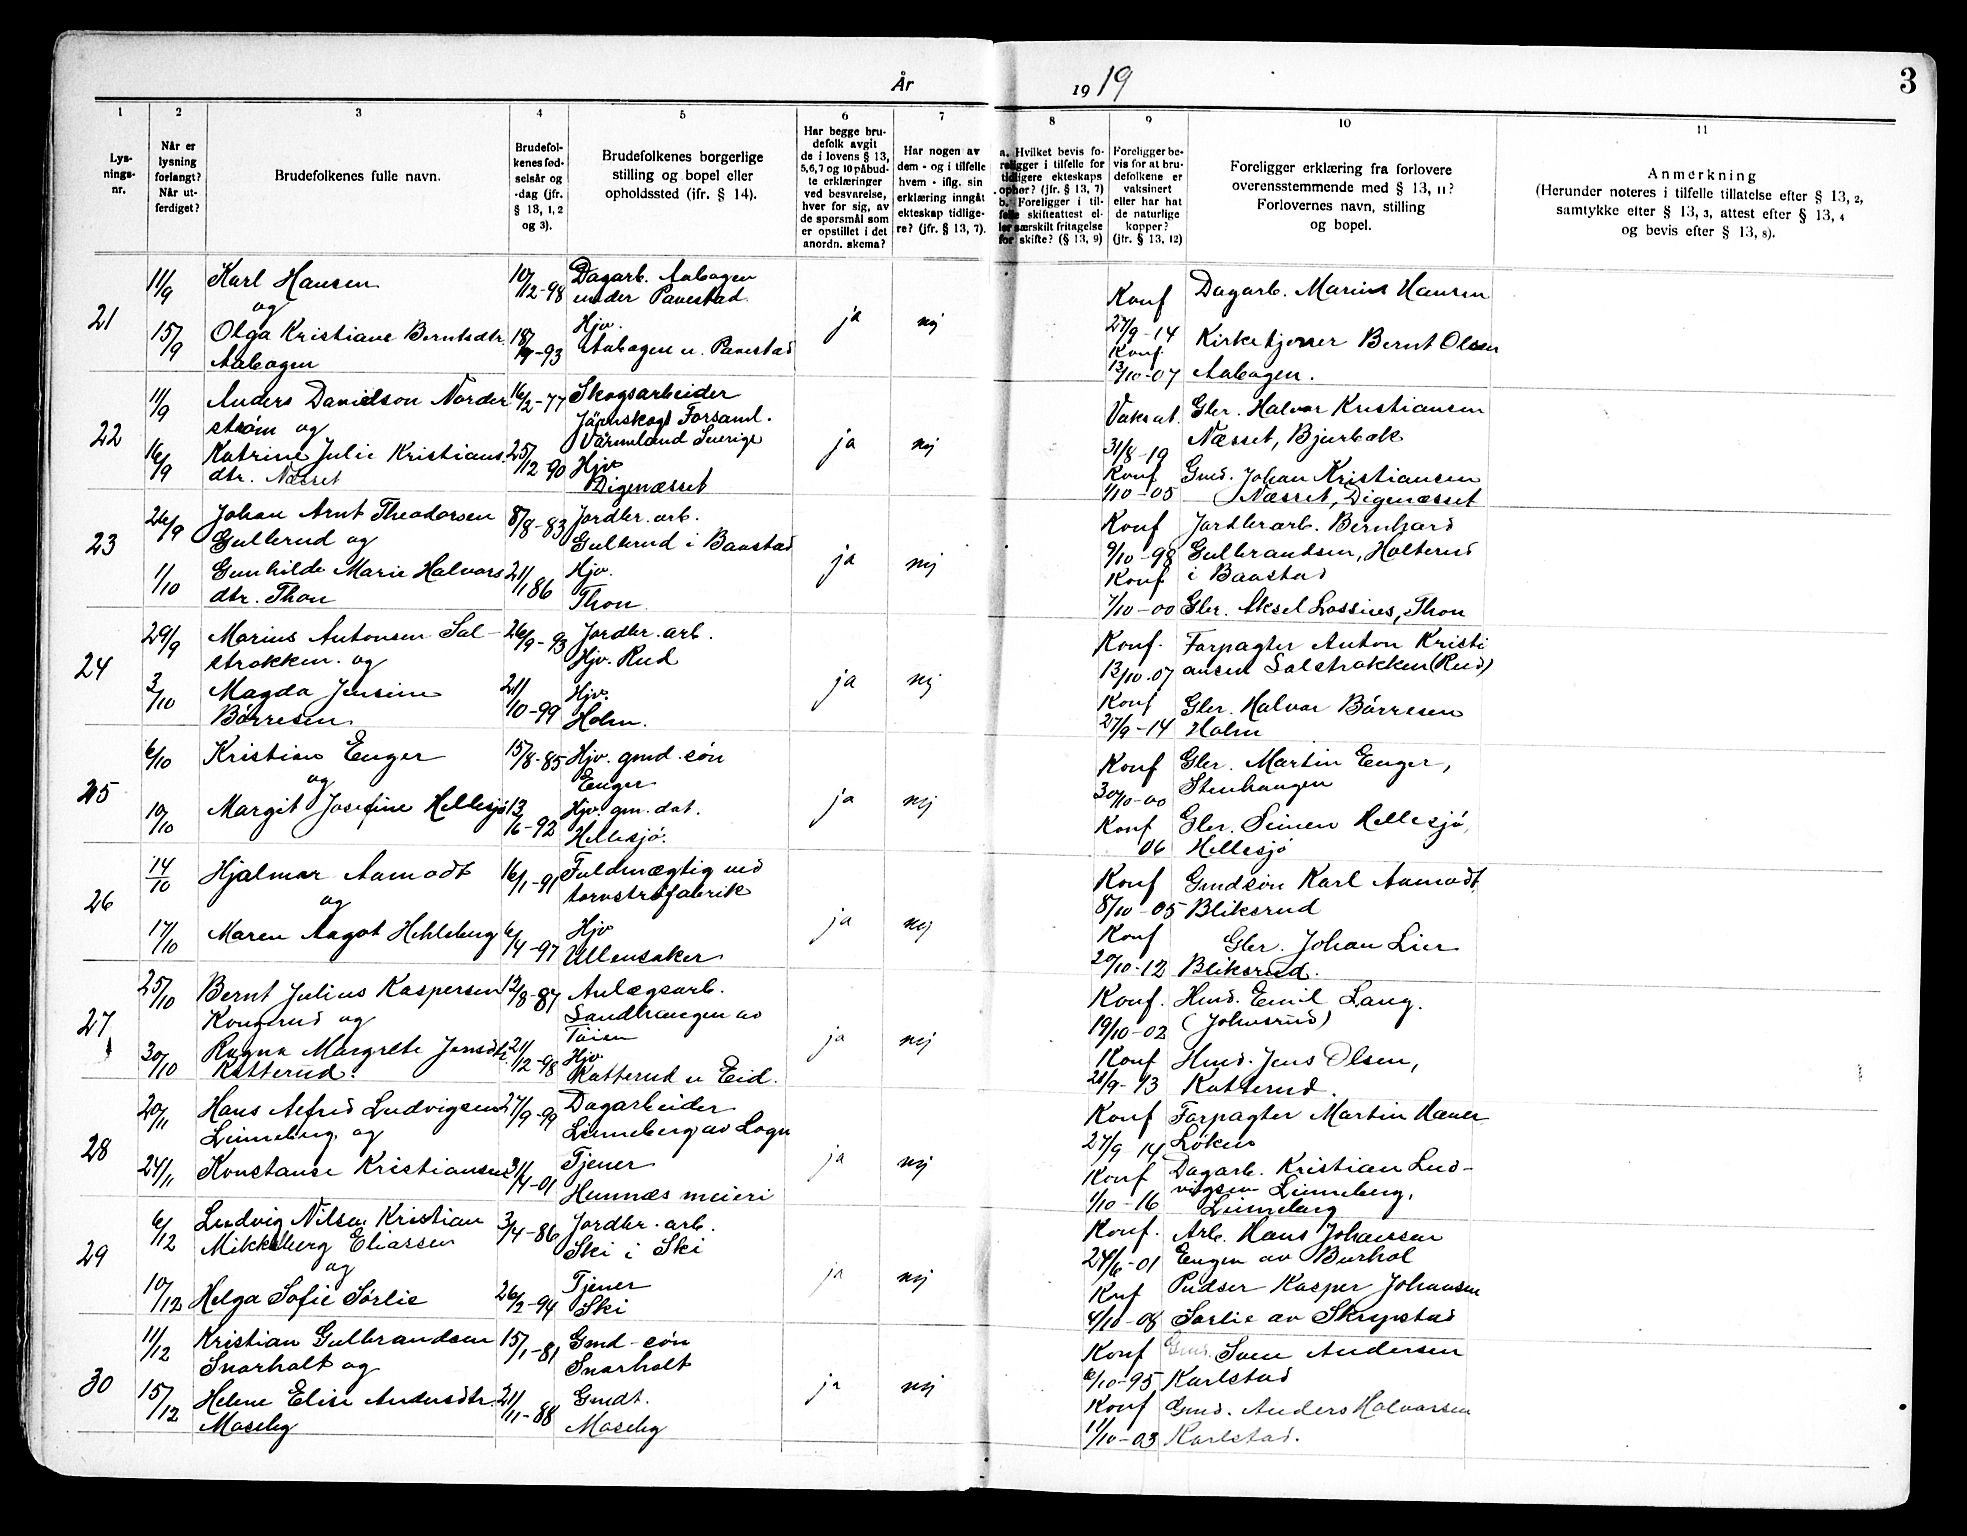 År 1919
3
1 2 3 4 5 6 7 8 9 10 11
Lysningsnr.
Når er lysning forlangt? Når utferdiget?
Brudefolkenes fulle navn.
Brudefolkenes fødselsår og -dag (jfr. § 13, 1, 2 og 3).
Brudefolkenes borgerlige stilling og bopel eller opholdssted (jfr. § 14).
Har begge brudefolk avgit de i lovens § 13, 5, 6, 7 og 10 påbudte erklæringer ved besvarelse, hver for sig, av de spørsmål som er opstillet i det anordn. skema?
Har nogen av dem - og i tilfelle hvem - iflg. sin erklæring inngåt ekteskap tidligere? (jfr. § 13, 7).
a. Hvilket bevis foreligger i tilfelle for tidligere ekteskaps ophør? (jfr. § 13, 7)
b. Foreligger i tilfelle skifteattest eller særskilt fritagelse for skifte? (§ 13, 9)
Foreligger bevis for at brudefolkene er vaksinert eller har hat de naturlige kopper? (jfr. § 13, 12)
Foreligger erklæring fra forlovere overensstemmende med § 13, 11? Forlovernes navn, stilling og bopel.
Anmerkning
(Herunder noteres i tilfelle tillatelse efter § 13, 2, samtykke efter § 13, 3, attest efter § 13, 4 og bevis efter § 13, 8).
21
11/9 Karl Hansen 10/12-98 Dagarb. Aabogen
og under Pavestad
15/9 Olga Kristiane Berntsdtr. 18/-93 Hjv.
Aabogen Aabogen u. Pavestad
ja nej
Konf Dagarb. Marius Hansen
27/9-14 Kirketjener Bernt Olsen
Konf
13/10-07 Aabogen.
22
11/9 Anders Davidson Norder 16/2-77 Skogsarbeider
strøm og Järnskogs Forsaml.
Värmland Sverige
16/9 Katrine Julie Kristians 25/12-90 Hjv
dtr. Næsset Digenæsset
ja nej
Vaksat. Gbr. Halvor Kristiansen
31/8-19 Næsset, Bjurbæk
Konf Gmd. Johan Kristiansen
1/10-05 Næsset, Digenæsset
23
26/9 Johan Arnt Theodorsen 8/8-83 Jordbr. arb.
Gullerud og Gullerud i Baastad
1/10 Gunhilde Marie Halvors 21/1 86 Hjv.
dtr. Thon Thon.
ja nej
Konf Jordbrarb. Bernhard
9/10-98 Gulbrandsen, Holterud
Konf i Baastad
7/10-00 Gbr. Aksel Lossius, Thon
24
29/9 Marius Antonsen Sal- 26/9-93 Jordbr. arb.
strokken. og Hjv. Rud
3/10 Magda Jensine 21/10-99 Hjv.
Børresen Holm.
ja nej
Konf. Forpagter Anton Kristi
13/10-07 ansen Salstrokken (Rud)
Konf Gbr. Halvor Børresen
27/9-14 Holm
25
6/10 Kristian Enger 15/8-85 Hjv. gmd. søn
og Enger
10/10 Margit Josefine Hellesjø 13/6-92 Hjv. gm. dat.
Hellesjø.
ja nej
Konf Gbr. Martin Enger,
30/10-00 Stenhaugen
Konf Gbr. Simen Hellesjø,
06 Hellesjø
26
14/10 Hjalmar Aamodt 16/1-91 Fuldmægtig ved
og torvstrøfabrik
17/10 Maren Aagot Hehleberg 6/4-97 Hjv
Ullensaker
ja nej
Konf Gmdsøn Karl Aamodt,
8/10-05 Bliksrud
Konf Gbr. Johan Lier
20/10-12 Bliksrud.
27
25/10 Bernt Julius Kaspersen 12/8-87 Anlægsarb.
Kongerud og Sandhaugen av
Töien
30/10 Ragna Margrete Jensdtr. 21/12-98 Hjv.
Katterud. Katterud u Eid.
ja nej
Konf. Hmd. Emil Lang.
19/10-02 (Johnsrud)
Konf Hmd. Jens Olsen,
21/9-13 Katterud.
28
20/11 Hans Alfred Ludvigsen 27/9-99 Dagarbeider
Linneberg og Linneberg av Logn
24/11 Konstanse Kristiansen 21/4-01 Tjener
Hemnæs meieri
ja nej
Konf Forpagter Martin Haner
27/9 14 Løken
Konf Dagarb. Kristian Lud-
vigsen Linneberg,
1/10-16 Linneberg
29
6/12 Ludvig Nilsen Kristian 3/4-86 Jordbr. arb.
Mikkelberg Eliassen Ski i Ski
og
10/12 Helga Sofie Sørlie 26/2-94 Tjener
Ski
ja nej
Konf. Arb. Hans Johansen
24/6-01 Engen av Burhol
Konf Pudser Kasper Johansen
4/10-08 Sørlie av Skrepstad
30
11/12 Kristian Gulbrandsen 15/1-81 Gmd-søn
Snarholt og Snarholt
15/12 Helene Elise Andersdtr. 21/11-88 Gmdt.
Moseby Moseby
ja nej
Konf Gmd. Sven Andersen
6/10-95 Karlstad
Konf Gmd. Anders Halvorsen
11/10-03 Karlstad.